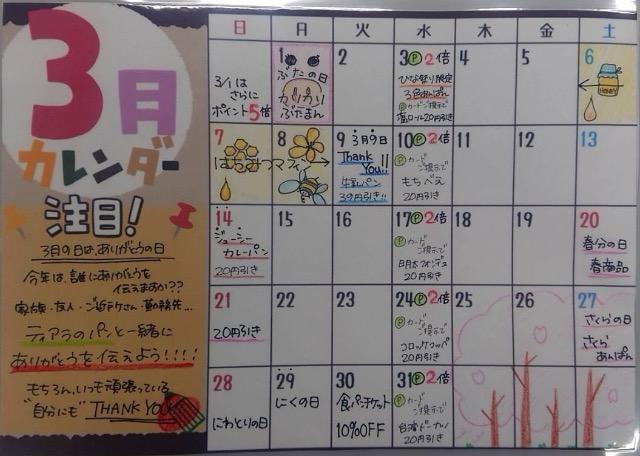 3月
カレンダー
注目!
3月9日は、ありがとうの日
今年は、誰にありがとうを
伝えますか??
家族・友人・ご近所さん・勤務先…
ティアラのパンと一緒に
ありがとうを伝えよう!!!!
もちろん、いつも頑張っている
"自分にも" THANK YOU
日 月 火 水 木 金 土
3/1は
さらに
ポイント5倍
1
ぶたの日
カリカリ
ぶたまん
2
3 P 2倍
ひな祭り限定
3色あんぱん
Pカードご提示で
塩ロール20円引き
4
5
6
HONEY
7
8
はちみつマフィン
9 3月9日
Thank
You!!
牛乳パン
39円引き!!
10 P 2倍
Pカード
ご提示で
もちべえ
20円引き
11
12
13
14
ジューシー
カレーパン
20円引き
15
16
17 P 2倍
Pカード
ご提示で
明太フォンデュ
20円引き
18
19
20
春分の日
春商品
21
20円引き
22
23
24 P 2倍
Pカード
ご提示で
コロッケコッペ
20円引き
25
26
27
さくらの日
さくら
あんぱん
28
にわとりの日
29
にくの日
30
食パンチケット
10%OFF
31 P 2倍
Pカード
ご提示で
20円引き